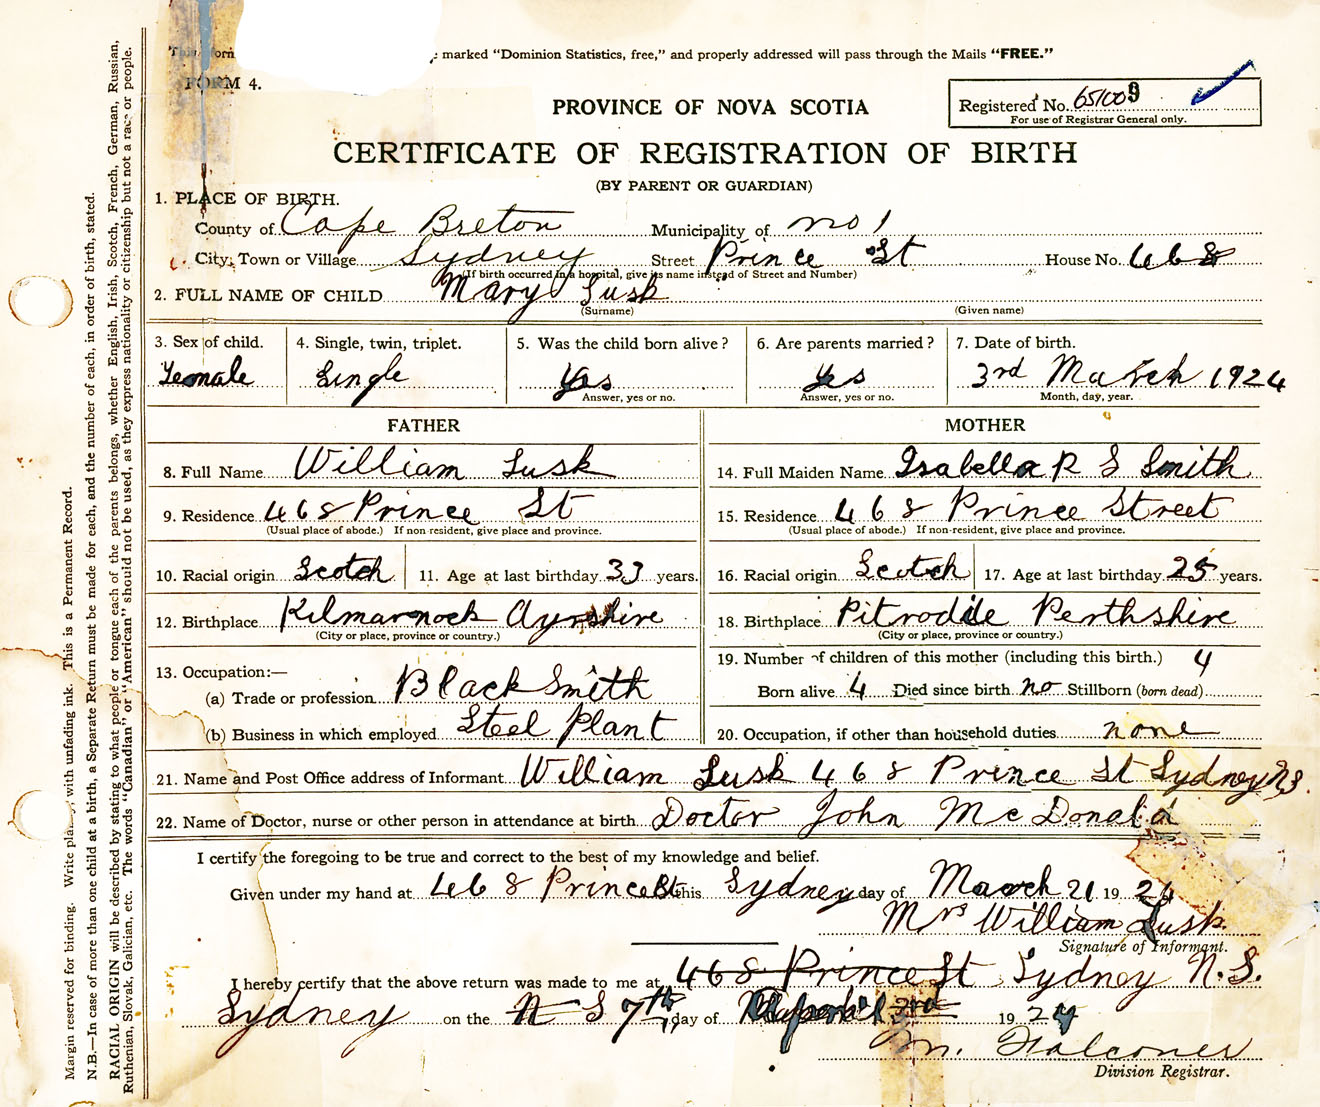 This form ; marked "Dominion Statistics, free," and properly addressed will pass through the Mails "FREE."
FORM 4.
PROVINCE OF NOVA SCOTIA
Registered No. 651009
For use of Registrar General only.
CERTIFICATE OF REGISTRATION OF BIRTH
(BY PARENT OR GUARDIAN)
1. PLACE OF BIRTH.
County of Cape Breton Municipality of no 1
City, Town or Village Sydney Street Prince St House No. 468
(If birth occurred in a hospital, give its name instead of Street and Number)
2. FULL NAME OF CHILD Mary Lusk
(Surname) (Given name)
3. Sex of child. 4. Single, twin, triplet. 5. Was the child born alive? 6. Are parents married? 7. Date of birth.
Female Single Yes Yes 3rd March 1924
Answer, yes or no. Answer, yes or no. Month, day, year.
FATHER MOTHER
8. Full Name William Lusk 14. Full Maiden Name Isabella R S Smith
9. Residence 468 Prince St 15. Residence 468 Prince Street
(Usual place of abode.) If non-resident, give place and province. (Usual place of abode.) If non-resident, give place and province.
10. Racial origin Scotch 11. Age at last birthday 33 years. 16. Racial origin Scotch 17. Age at last birthday 25 years.
12. Birthplace Kilmarnock Ayrshire 18. Birthplace Perthshire
(City or place, province or country.) (City or place, province or country.)
13. Occupation:— 19. Number of children of this mother (including this birth.) 4
(a) Trade or profession Black Smith Born alive 4 Died since birth no Stillborn (born dead)
(b) Business in which employed Steel Plant 20. Occupation, if other than household duties none
21. Name and Post Office address of Informant William Lusk 468 Prince St Sydney N.S.
22. Name of Doctor, nurse or other person in attendance at birth Doctor John McDonald
I certify the foregoing to be true and correct to the best of my knowledge and belief.
Given under my hand at 468 Prince St this Sydney day of March 21 1924
Mrs William Lusk.
Signature of Informant.
I hereby certify that the above return was made to me at 468 Prince St Sydney N.S.
Sydney on the N S 7th day of April 1924
M. Falconer
Division Registrar.
Margin reserved for binding. Write plainly, with unfading ink. This is a Permanent Record.
N.B.—In case of more than one child at a birth, a Separate Return must be made for each, and the number of each, in order of birth, stated.
RACIAL ORIGIN will be described by stating to what people or tongue each of the parents belongs, whether English, Irish, Scotch, French, German, Russian,
Ruthenian, Slovak, Galician, etc. The words "Canadian" or "American" should not be used, as they express nationality or citizenship but not a race or people.